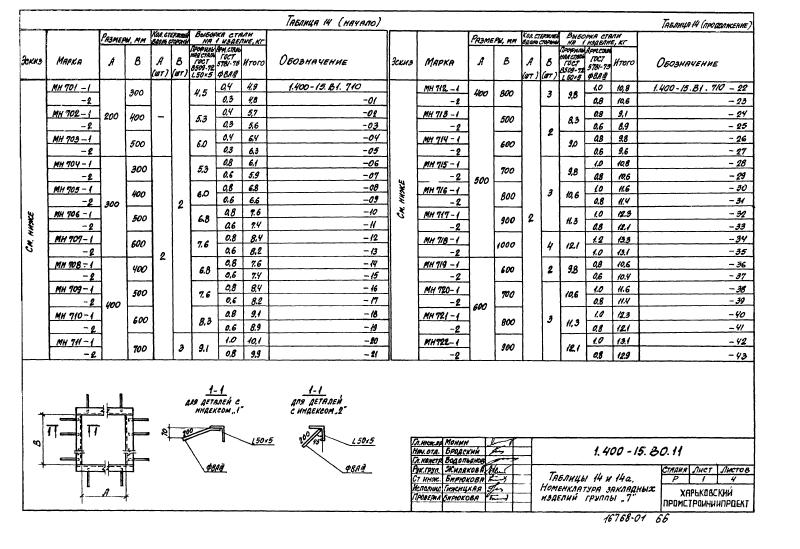 Таблица 14 (начало)
Эскиз Марка Размеры, мм Кол. стержней вдоль стороны Выборка стали на 1 изделие, кг Обозначение
А В А (шт) В (шт) Профильная сталь ГОСТ 8509-72 L50×5 Арм. сталь ГОСТ 5781-75 Ф8АIII Итого
См. ниже
МН 701-1 200 300 – 2 4,5 0,4 4,9 1.400-15.В1.710
-2 0,3 4,8 -01
МН 702-1 400 5,3 0,4 5,7 -02
-2 0,3 5,6 -03
МН 703-1 500 6,0 0,4 6,4 -04
-2 0,3 6,3 -05
МН 704-1 300 300 2 5,3 0,8 6,1 -06
-2 0,6 5,9 -07
МН 705-1 400 6,0 0,8 6,8 -08
-2 0,6 6,6 -09
МН 706-1 500 6,8 0,8 7,6 -10
-2 0,6 7,4 -11
МН 707-1 600 7,6 0,8 8,4 -12
-2 0,6 8,2 -13
МН 708-1 400 400 6,8 0,8 7,6 -14
-2 0,6 7,4 -15
МН 709-1 500 7,6 0,8 8,4 -16
-2 0,6 8,2 -17
МН 710-1 600 8,3 0,8 9,1 -18
-2 0,6 8,9 -19
МН 711-1 700 3 9,1 1,0 10,1 -20
-2 0,8 9,9 -21
Таблица 14 (продолжение)
Эскиз Марка Размеры, мм Кол. стержней вдоль стороны Выборка стали на 1 изделие, кг Обозначение
А В А (шт) В (шт) Профильная сталь ГОСТ 8509-72 L50×5 Арм. сталь ГОСТ 5781-75 Ф8АIII Итого
См. ниже
МН 712-1 400 800 2 3 9,8 1,0 10,8 1.400-15.В1.710-22
-2 0,8 10,6 -23
МН 713-1 500 500 2 8,3 0,8 9,1 -24
-2 0,6 8,9 -25
МН 714-1 600 9,0 0,8 9,8 -26
-2 0,6 9,6 -27
МН 715-1 700 3 9,8 1,0 10,8 -28
-2 0,8 10,6 -29
МН 716-1 800 10,6 1,0 11,6 -30
-2 0,8 11,4 -31
МН 717-1 900 11,3 1,0 12,3 -32
-2 0,8 12,1 -33
МН 718-1 1000 4 12,1 1,2 13,3 -34
-2 1,0 13,1 -35
МН 719-1 600 600 2 9,8 0,8 10,6 -36
-2 0,6 10,4 -37
МН 720-1 700 3 10,6 1,0 11,6 -38
-2 0,8 11,4 -39
МН 721-1 800 11,3 1,0 12,3 -40
-2 0,8 12,1 -41
МН 722-1 900 12,1 1,0 13,1 -42
-2 0,8 12,9 -43
В
1 1
А
1-1
для деталей
с индексом „1"
70 200
L50×5
Ф8АIII
1-1
для деталей
с индексом „2"
200
L50×5
Ф8АIII
Гл. инж. пр. Монин
Нач. отд. Бродский
Гл. констр. Водопьянов
Рук. груп. Жилякова
Ст. инж. Бирюкова
Исполнил
Проверил Бирюкова
1.400-15.В0.11
Таблицы 14 и 14а.
Номенклатура закладных
изделий группы „7"
Стадия Лист Листов
Р 1 4
Харьковский
Промстройниипроект
16768-01 66